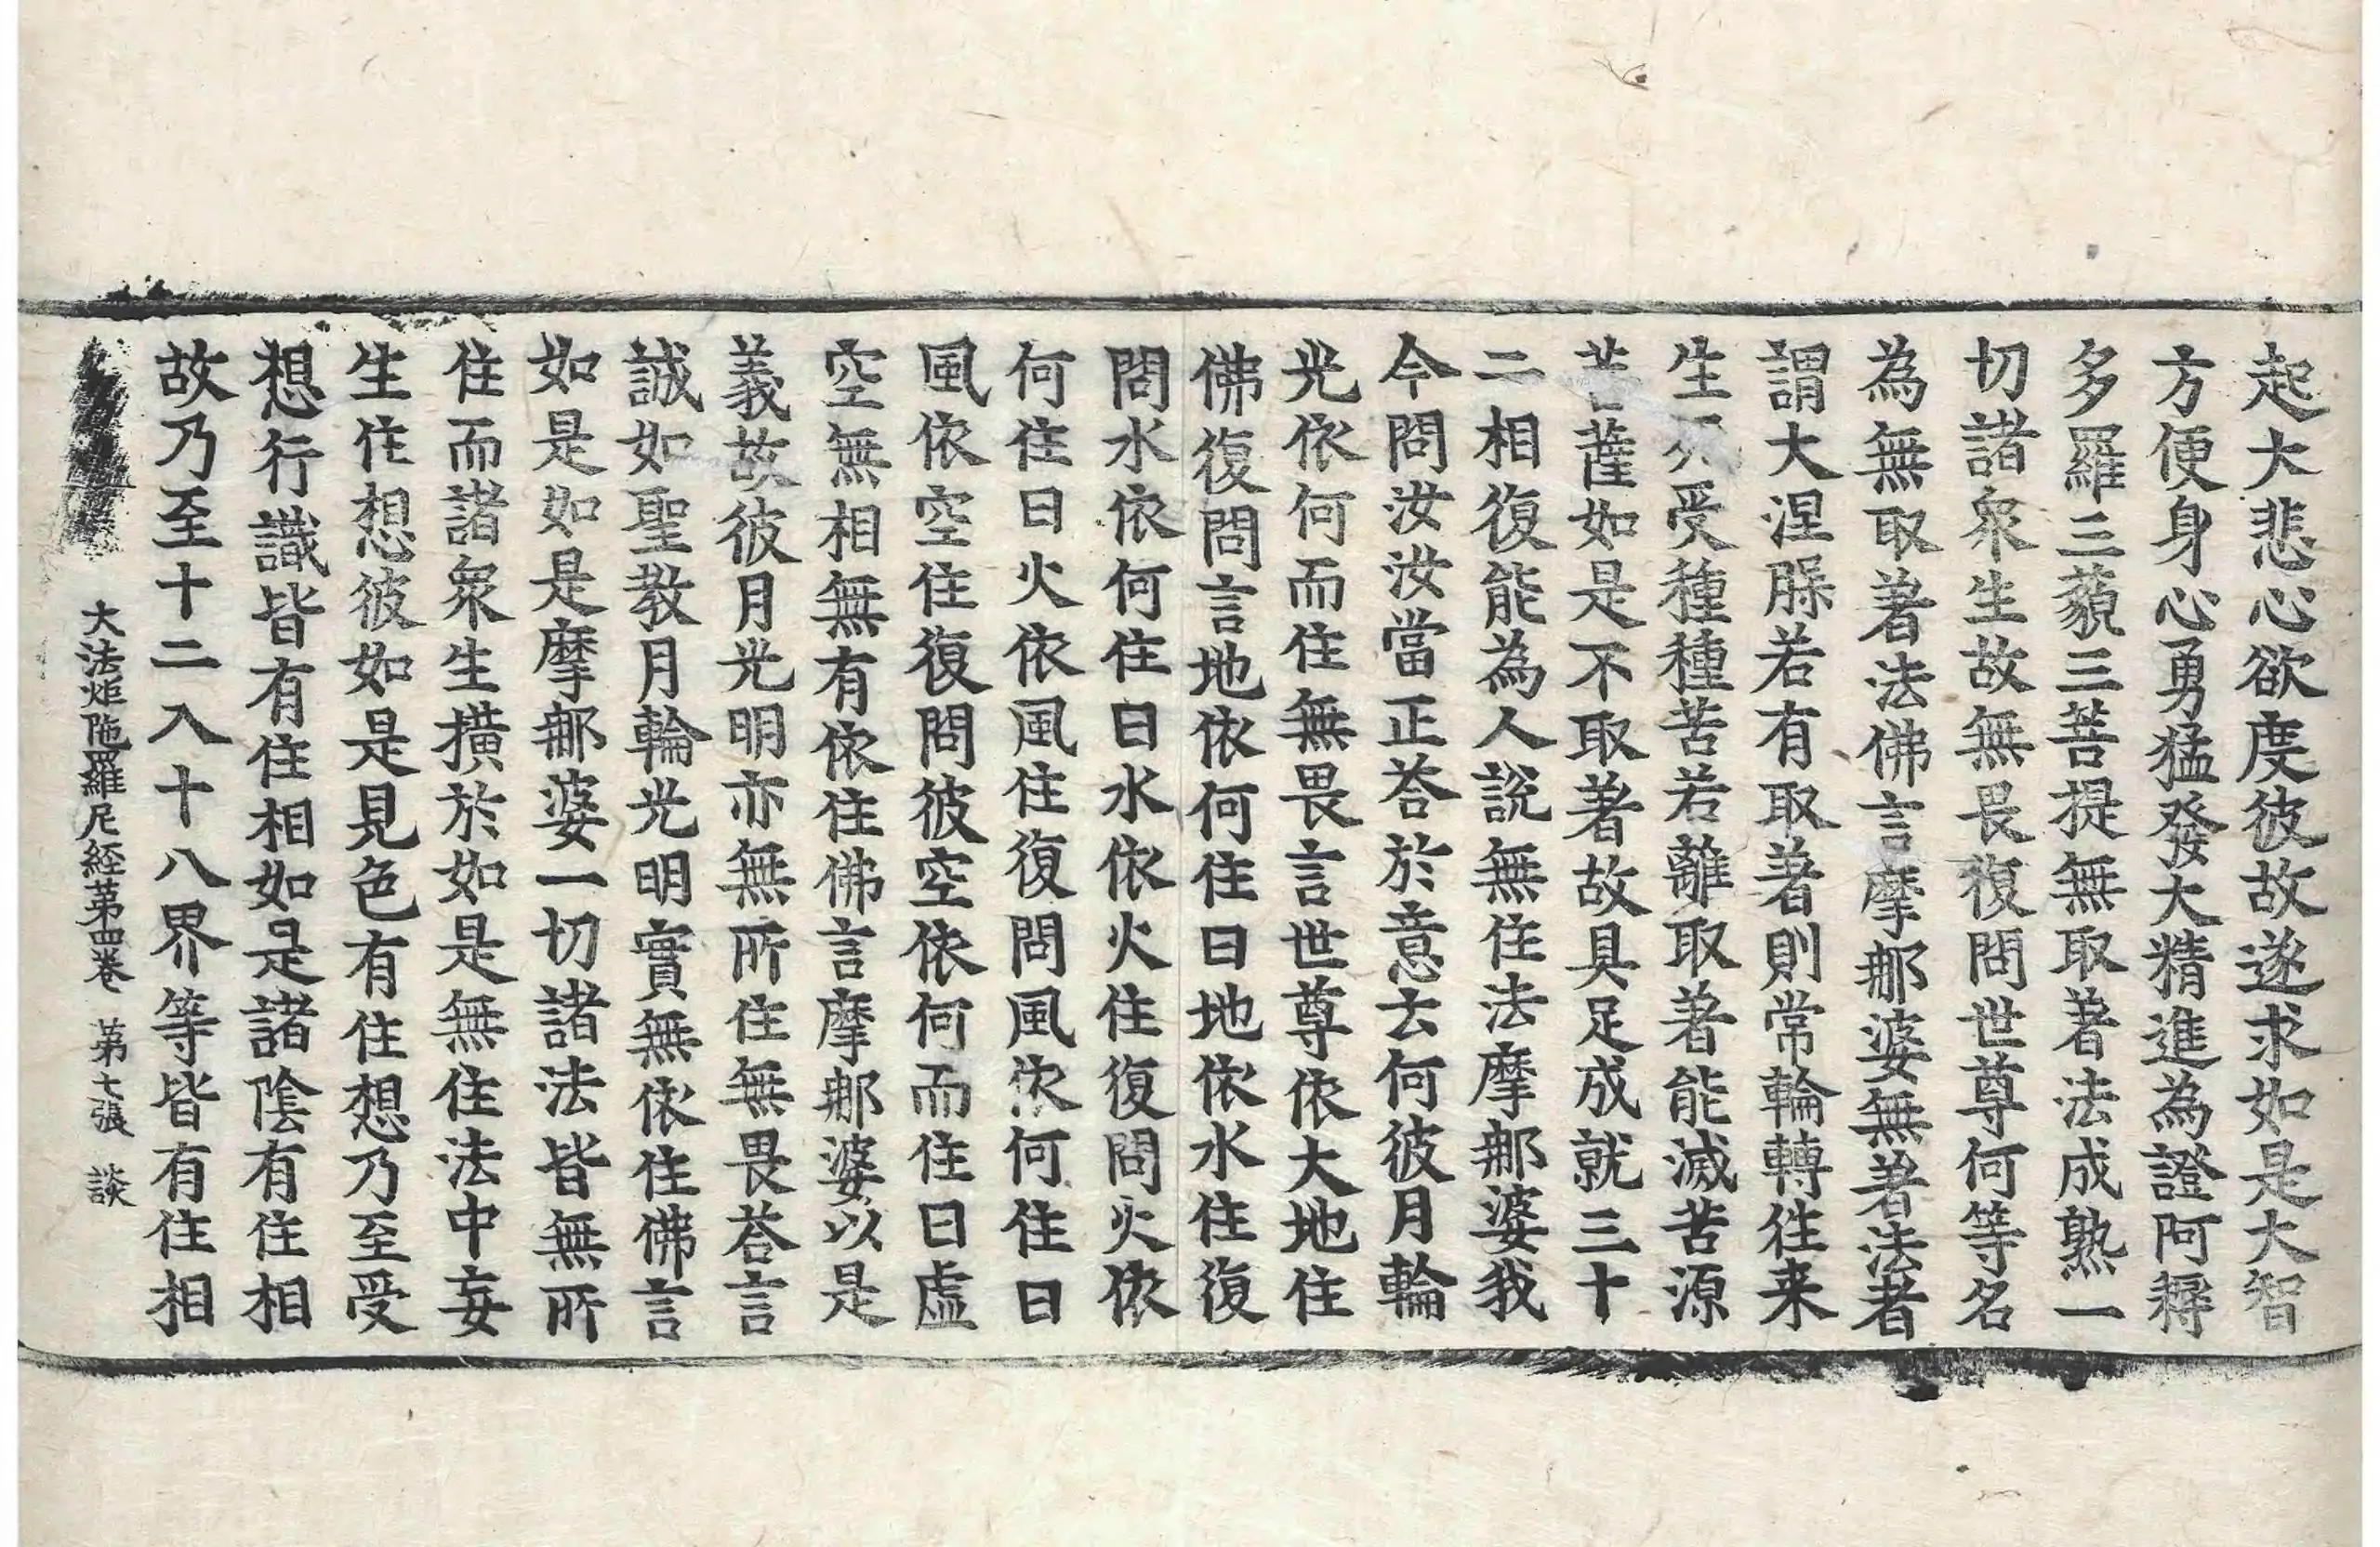 起大悲心欲度彼故遂求如是大智
方便身心勇猛發大精進為證阿耨
多羅三藐三菩提無取著法成熟一
切諸衆生故無畏復問世尊何等名
為無取著法佛言摩那婆無著法者
謂大涅槃若有取著則常輪轉往来
生死受種種苦若離取著能滅苦源
菩薩如是不取著故具足成就三十
二相復能為人說無住法摩那婆我
今問汝汝當正荅於意云何彼月輪
光依何而住無畏言世尊依大地住
佛復問言地依何住曰地依水住復
問水依何住曰水依火住復問火依
何住曰火依風住復問風依何住曰
風依空住復問彼空依何而住曰虛
空無相無有依住佛言摩那婆以是
義故彼月光明亦無所住無畏荅言
誠如聖教月輪光明實無依住佛言
如是如是摩那婆一切諸法皆無所
住而諸衆生橫於如是無住法中妄
生住想彼如是見色有住想乃至受
想行識皆有住相如是諸陰有住相
故乃至十二入十八界等皆有住相
大法炬陁羅尼經苐四卷 苐七張 談